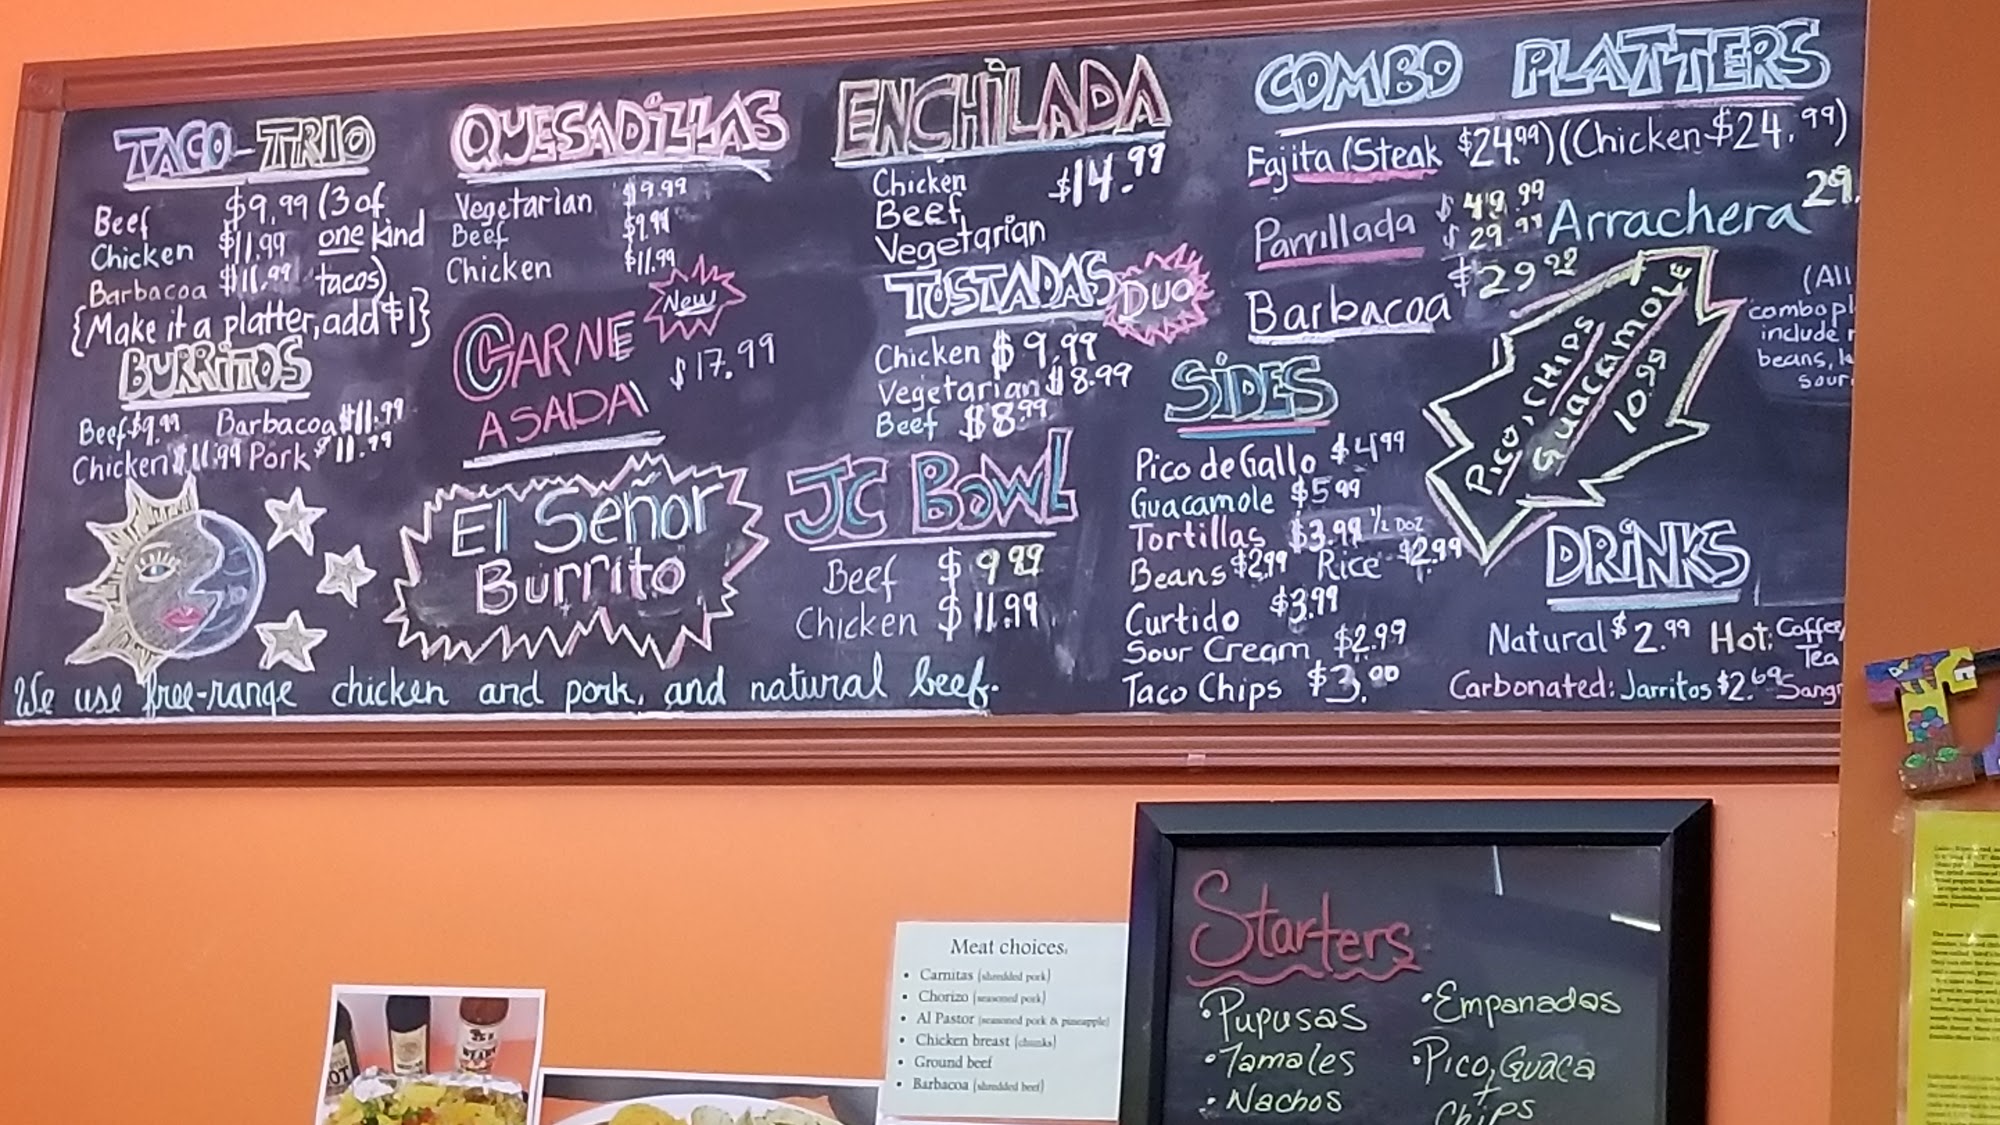 TACO-TRIO
Beef $9.99 (3 of
Chicken $11.99 one kind
Barbacoa $11.99 tacos)
{Make it a platter, add $1}
BURRITOS
Beef $9.99 Barbacoa $11.99
Chicken $11.99 Pork $11.99
QUESADILLAS
Vegetarian $9.99
Beef $9.99
Chicken $11.99
New
CARNE
ASADA $17.99
El Señor
Burrito
We use free-range chicken and pork, and natural beef.
ENCHILADA
Chicken $14.99
Beef
Vegetarian
TOSTADAS DUO
Chicken $9.99
Vegetarian $8.99
Beef $8.99
JC BOWL
Beef $9.99
Chicken $11.99
COMBO PLATTERS
Fajita (Steak $24.99) (Chicken $24.99)
Parrillada $49.99
$29.99
Arrachera 29.
Barbacoa $29.99
(All
combo pl
include
beans,
sour
Pico, CHIPS
Guacamole
10.99
SIDES
Pico de Gallo $4.99
Guacamole $5.99
Tortillas $3.99 1/2 Doz
Beans $2.99 Rice $2.99
Curtido $3.99
Sour Cream $2.99
Taco Chips $3.00
DRINKS
Natural $2.99 Hot: Coffee/
Tea
Carbonated: Jarritos $2.69 Sangr
Meat choices:
• Carnitas (shredded pork)
• Chorizo (seasoned pork)
• Al Pastor (seasoned pork & pineapple)
• Chicken breast (chunks)
• Ground beef
• Barbacoa (shredded beef)
Starters
• Pupusas
• Tamales
• Nachos
• Empanadas
• Pico, Guaca
+
Chips